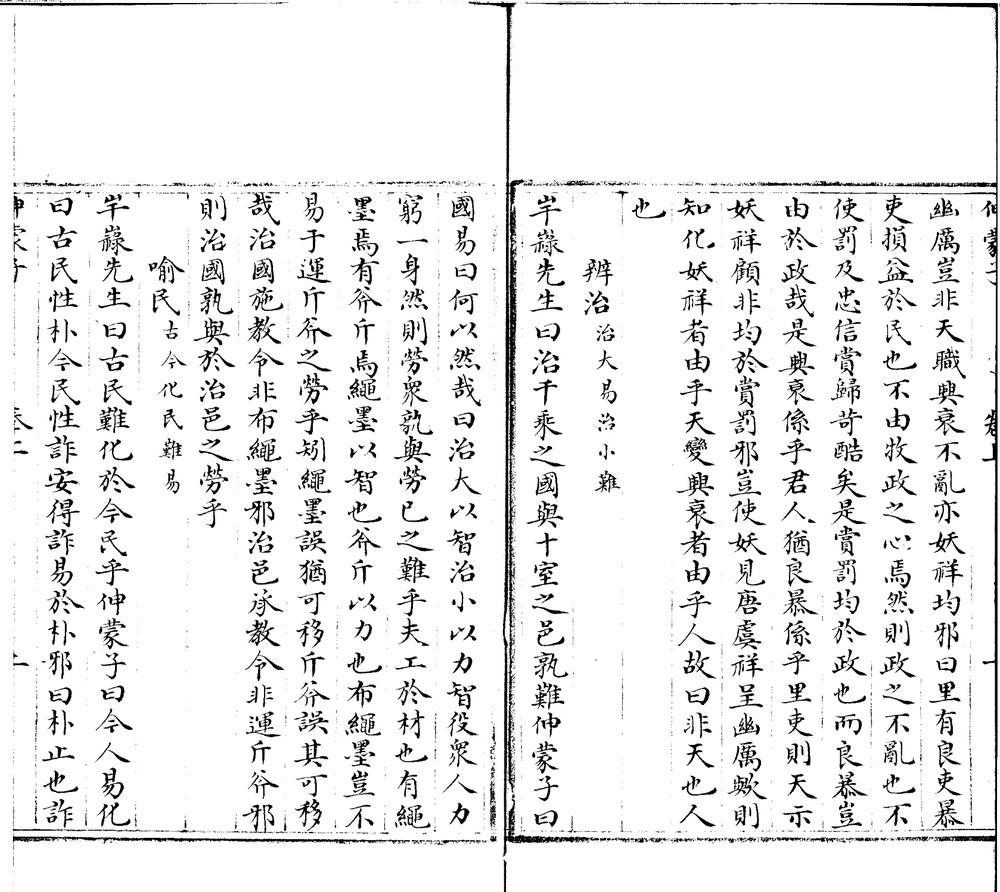 幽厲豈非天職興衰不亂亦妖祥均邪曰里有良吏暴
吏損益於民也不由牧政之心焉然則政之不亂也不
使罰及忠信賞歸苛酷矣是賞罰均於政也而良暴豈
由於政哉是興衰係乎君人猶良暴係乎里吏則天示
妖祥顧非均於賞罰邪豈使妖見唐虞祥呈幽厲歟則
知化妖祥者由乎天變興衰者由乎人故曰非天也人
也
辨治治大易治小難
芉䘵先生曰治千乘之國與十室之邑孰難伸蒙子曰
國易曰何以然哉曰治大以智治小以力智役衆人力
窮一身然則勞衆孰與勞已之難乎夫工於材也有繩
墨焉有斧斤焉繩墨以智也斧斤以力也布繩墨豈不
易于運斤斧之勞乎矧繩墨誤猶可移斤斧誤其可移
哉治國施教令非布繩墨邪治邑承教令非運斤斧邪
則治國孰與於治邑之勞乎
喻民古今化民難易
芉䘵先生曰古民難化於今民乎伸蒙子曰今人易化
曰古民性朴今民性詐安得詐易於朴邪曰朴止也詐